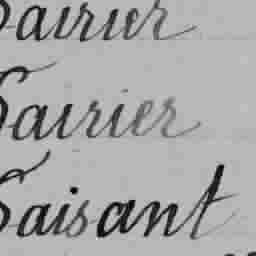 Sairier
Sairier
Saisant